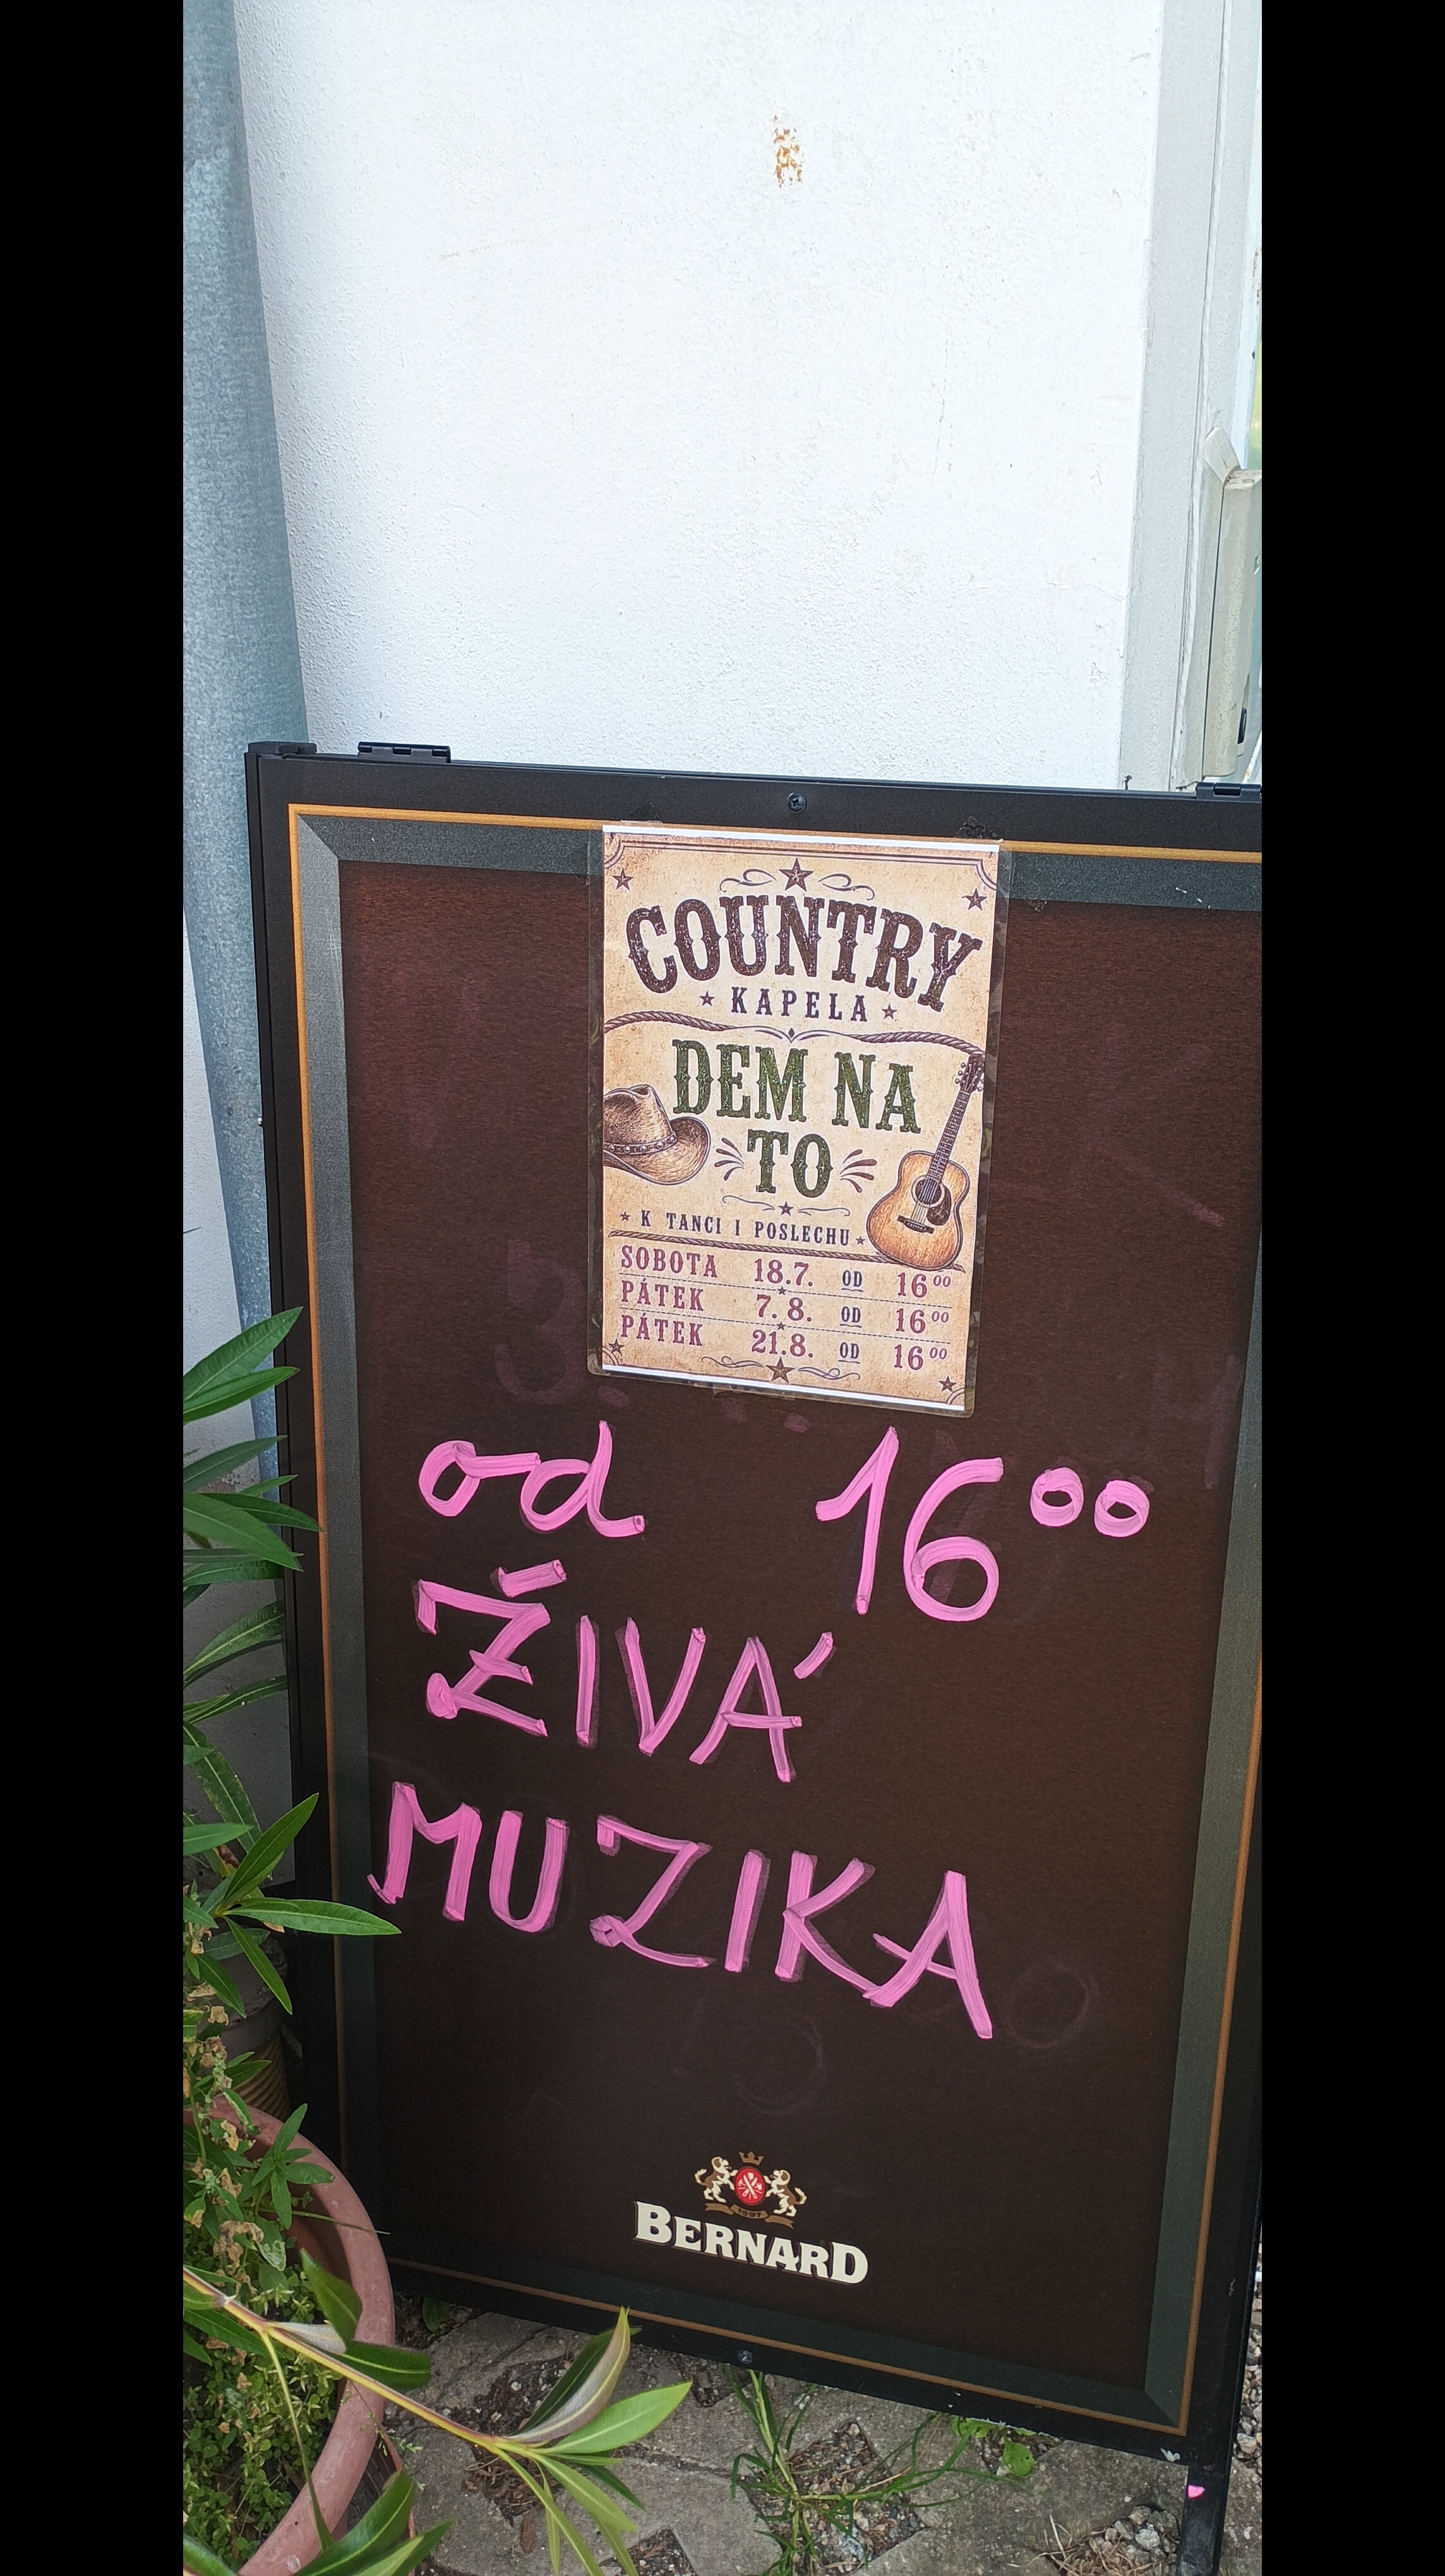 COUNTRY
KAPELA
DEM NA
TO
K TANCI I POSLECHU
SOBOTA 18.7. OD 16⁰⁰
PÁTEK 7. 8. OD 16⁰⁰
PÁTEK 21.8. OD 16⁰⁰
od 16⁰⁰
ŽIVÁ
MUZIKA
1597
BERNARD